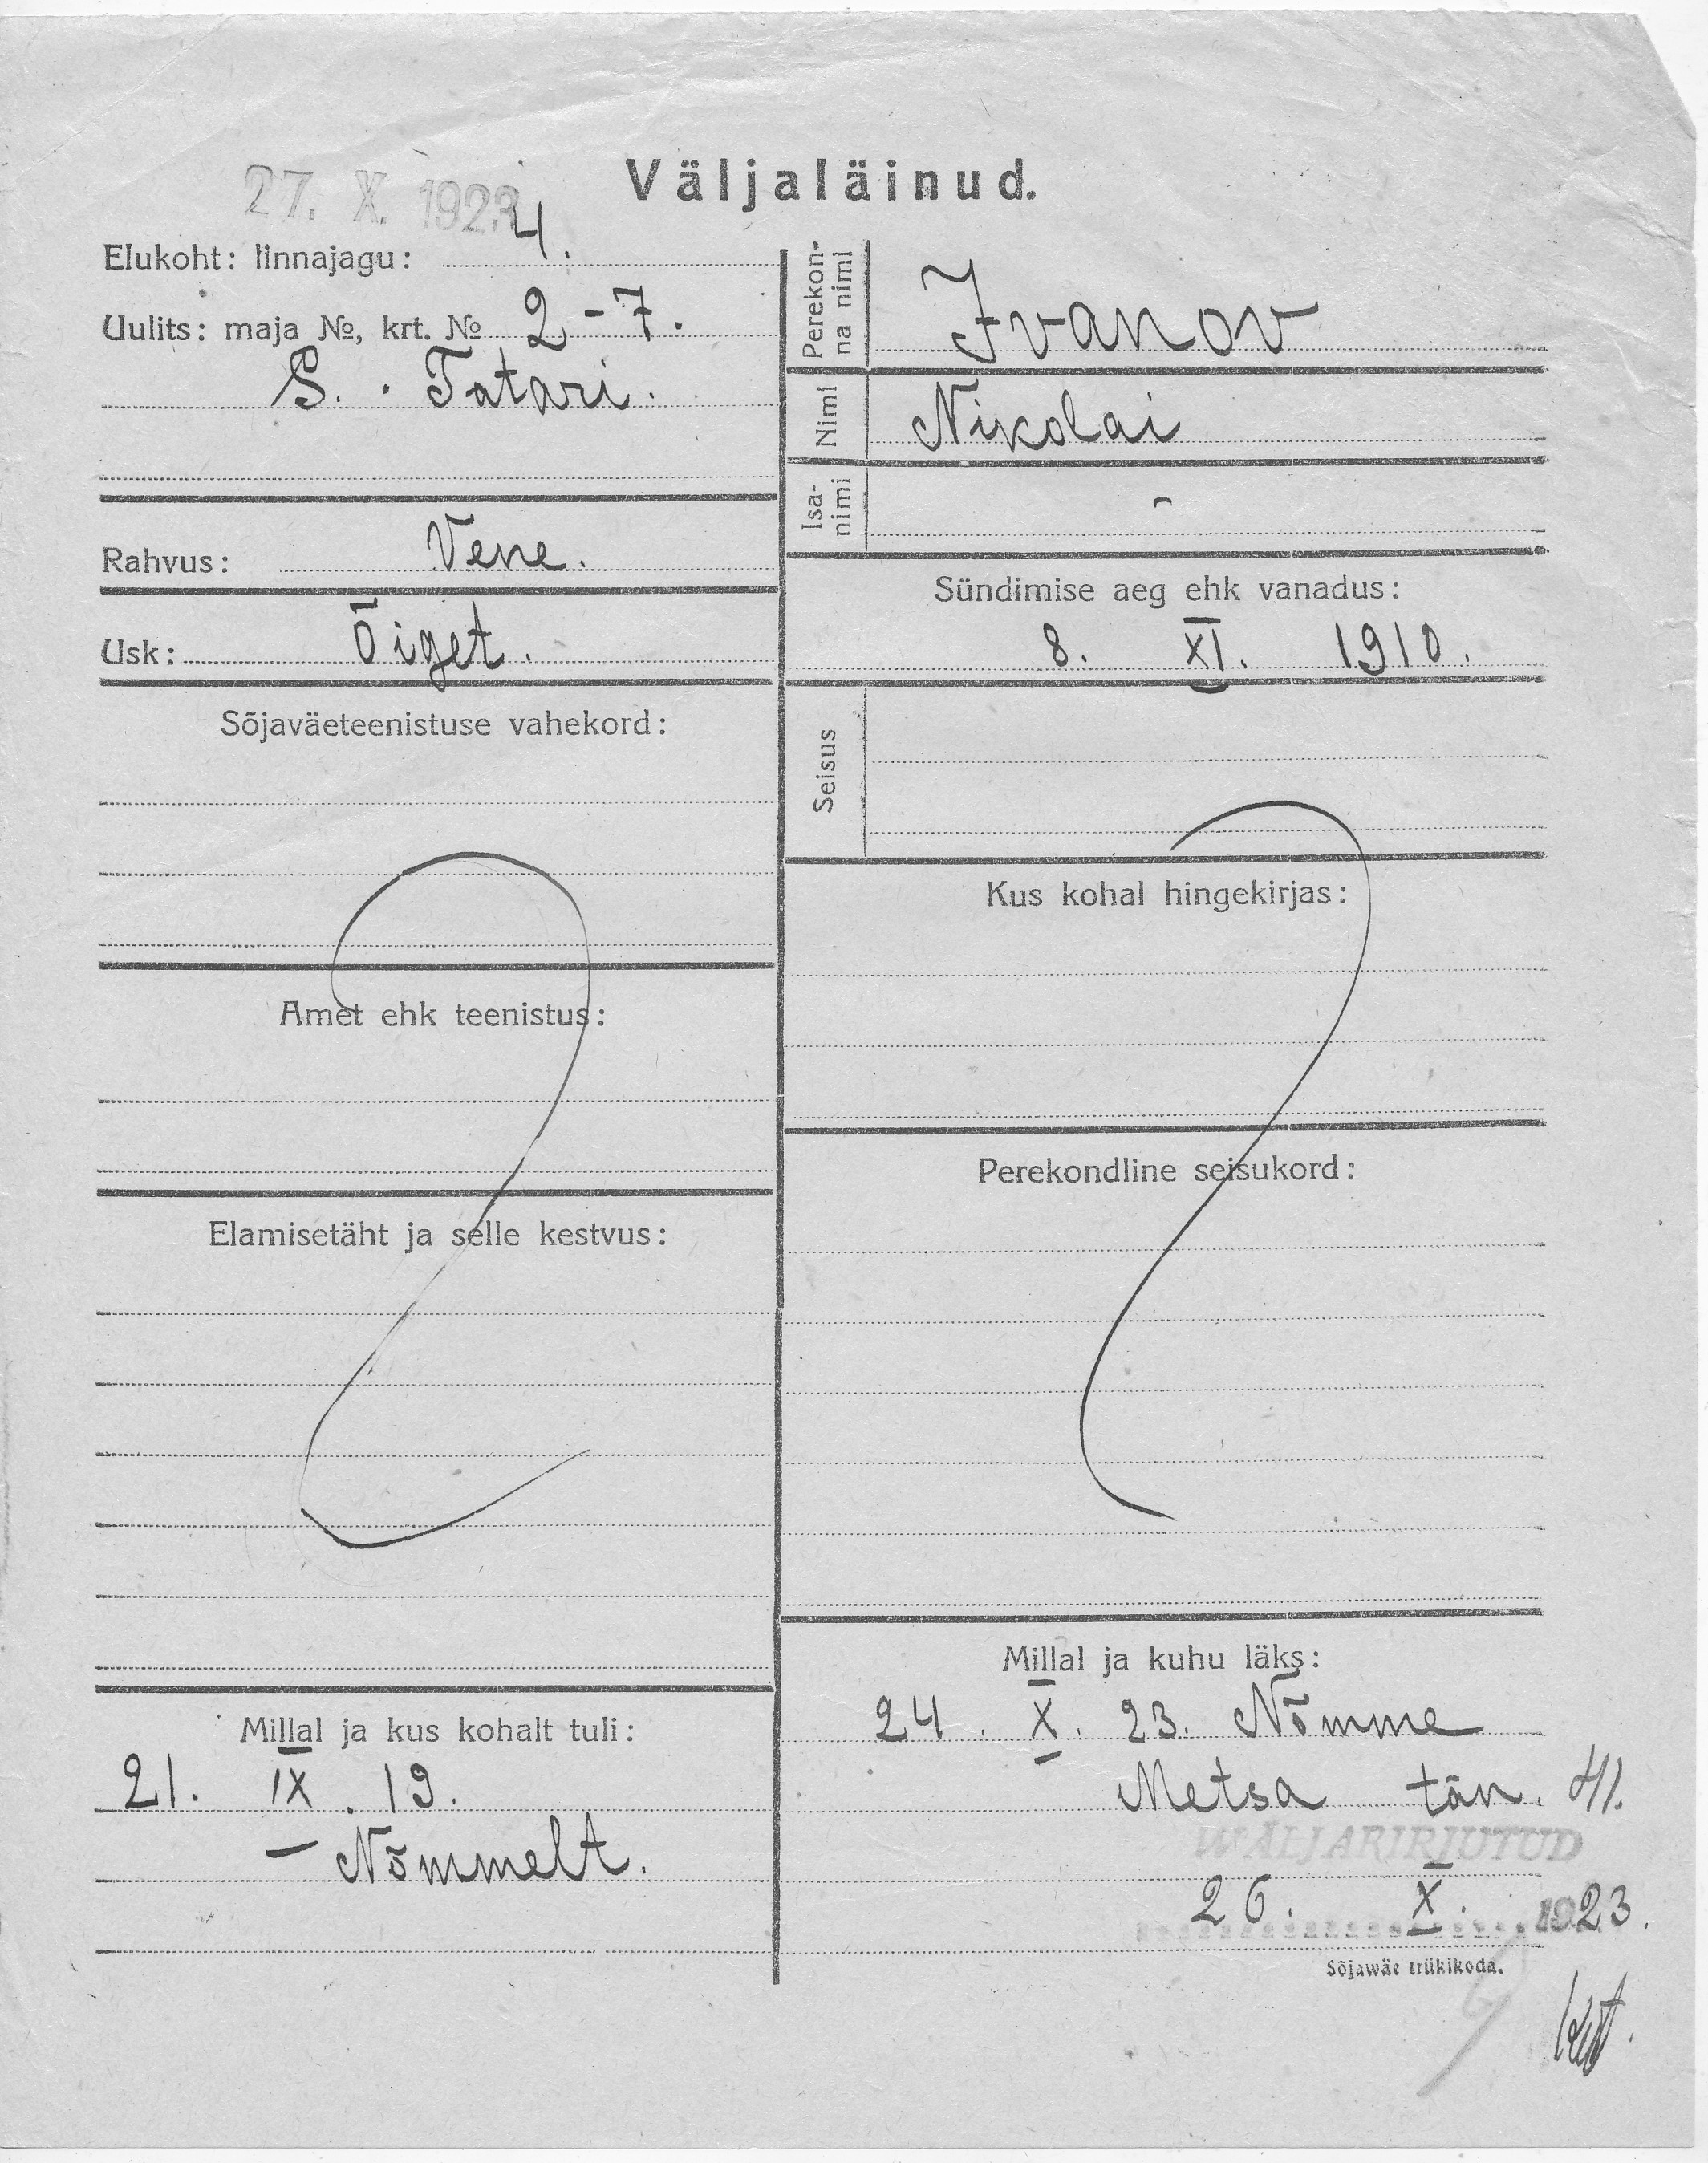 Väljaläinud.
27. X. 1923
Elukoht: linnajagu: 4.
Uulits: maja №, krt. № 2-7.
S. Tatari.
Rahvus: Vene.
Usk: Õiget.
Sõjaväeteenistuse vahekord:
Amet ehk teenistus:
Elamisetäht ja selle kestvus:
Millal ja kus kohalt tuli:
21. IX. 19.
– Nõmmelt.
Perekon-
na nimi
Ivanov
Nimi Nikolai
Isa-
nimi -
Sündimise aeg ehk vanadus:
8. XI. 1910.
Seisus
Kus kohal hingekirjas:
Perekondline seisukord:
Millal ja kuhu läks:
24. X. 23. Nõmme
Metsa tän. 41.
WÄLJAKIRJUTUD
26. X. 1923.
Sõjawäe trükikoda.